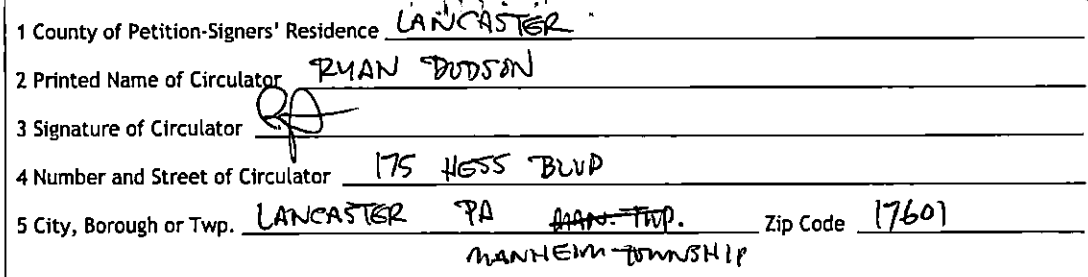 1 County of Petition-Signers' Residence LANCASTER
2 Printed Name of Circulator RYAN DODSON
3 Signature of Circulator
4 Number and Street of Circulator 175 HESS BLVD
5 City, Borough or Twp. LANCASTER PA MAN. TWP. Zip Code 17601
MANHEIM TOWNSHIP